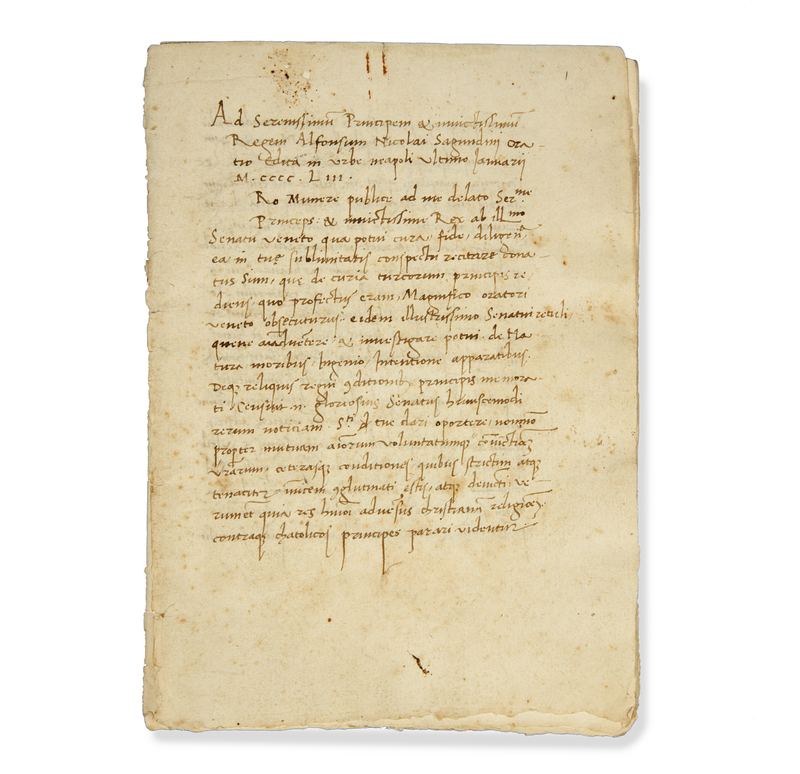 Ad Serenissimū Principem & invictissimū
Regem Alfonsum Nicolai Sagundini ora
tio Edita in Urbe neapoli Ultimo Januarii
M. cccc. LIII.
Ro Munere publice ad me delato Ser.me
Princeps: & invictissime Rex ab Ill.mo
Senatu Veneto qua potui cura, fide, diligen
ea in tuę sublimitatis conspectu recitare cona
tus sum, quę de curia turcorum principis re
diens, quo profectus eram, Magnifico oratori
veneto obsecuturus eidem illustrissimo Senatui retuli
queve aīadvertere, & investigare potui de Na
tura moribus, Ingenio, Intentione apparatibus.
Deq; reliquis regni 9ditionib; principis memora
ti. Censuit .n. gloriosius Senatus huiuscemodi
rerum noticiam S.ti tue dari oportere, non mō
propter mutuam aīorum voluntatumq; 
vrārum, ceterasq; conditiones quibus strictim atq;
tenaciter invicem 9glutinati estis, atq; devincti ve
rum et quia res huīoi adversus christianā religionē
contraq; chatolicos principes parari videntur